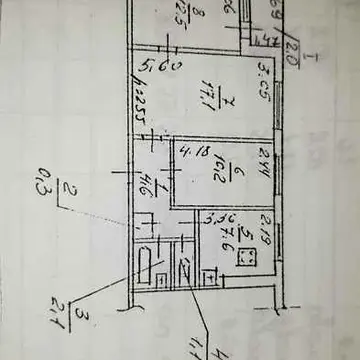 8
12.5
I
2.0
5,60
h=255
7
17.1
3.05
4.18
6
10,2
2.44
1
4.6
2
0,3
3,36
5
7.6
2.19
3
2,1
4
1,1